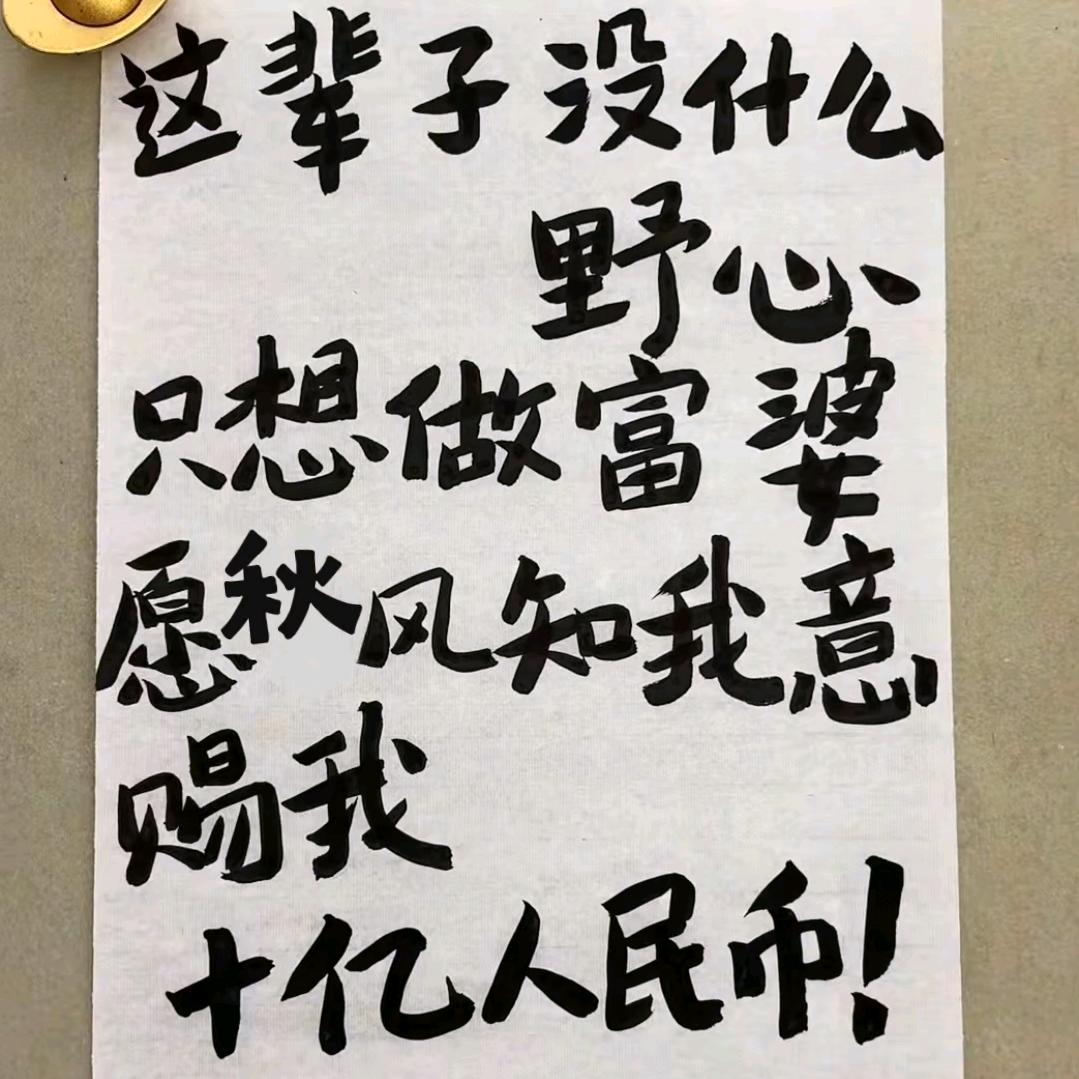 这辈子没什么
野心
只想做富婆
愿秋风知我意
赐我
十亿人民币!